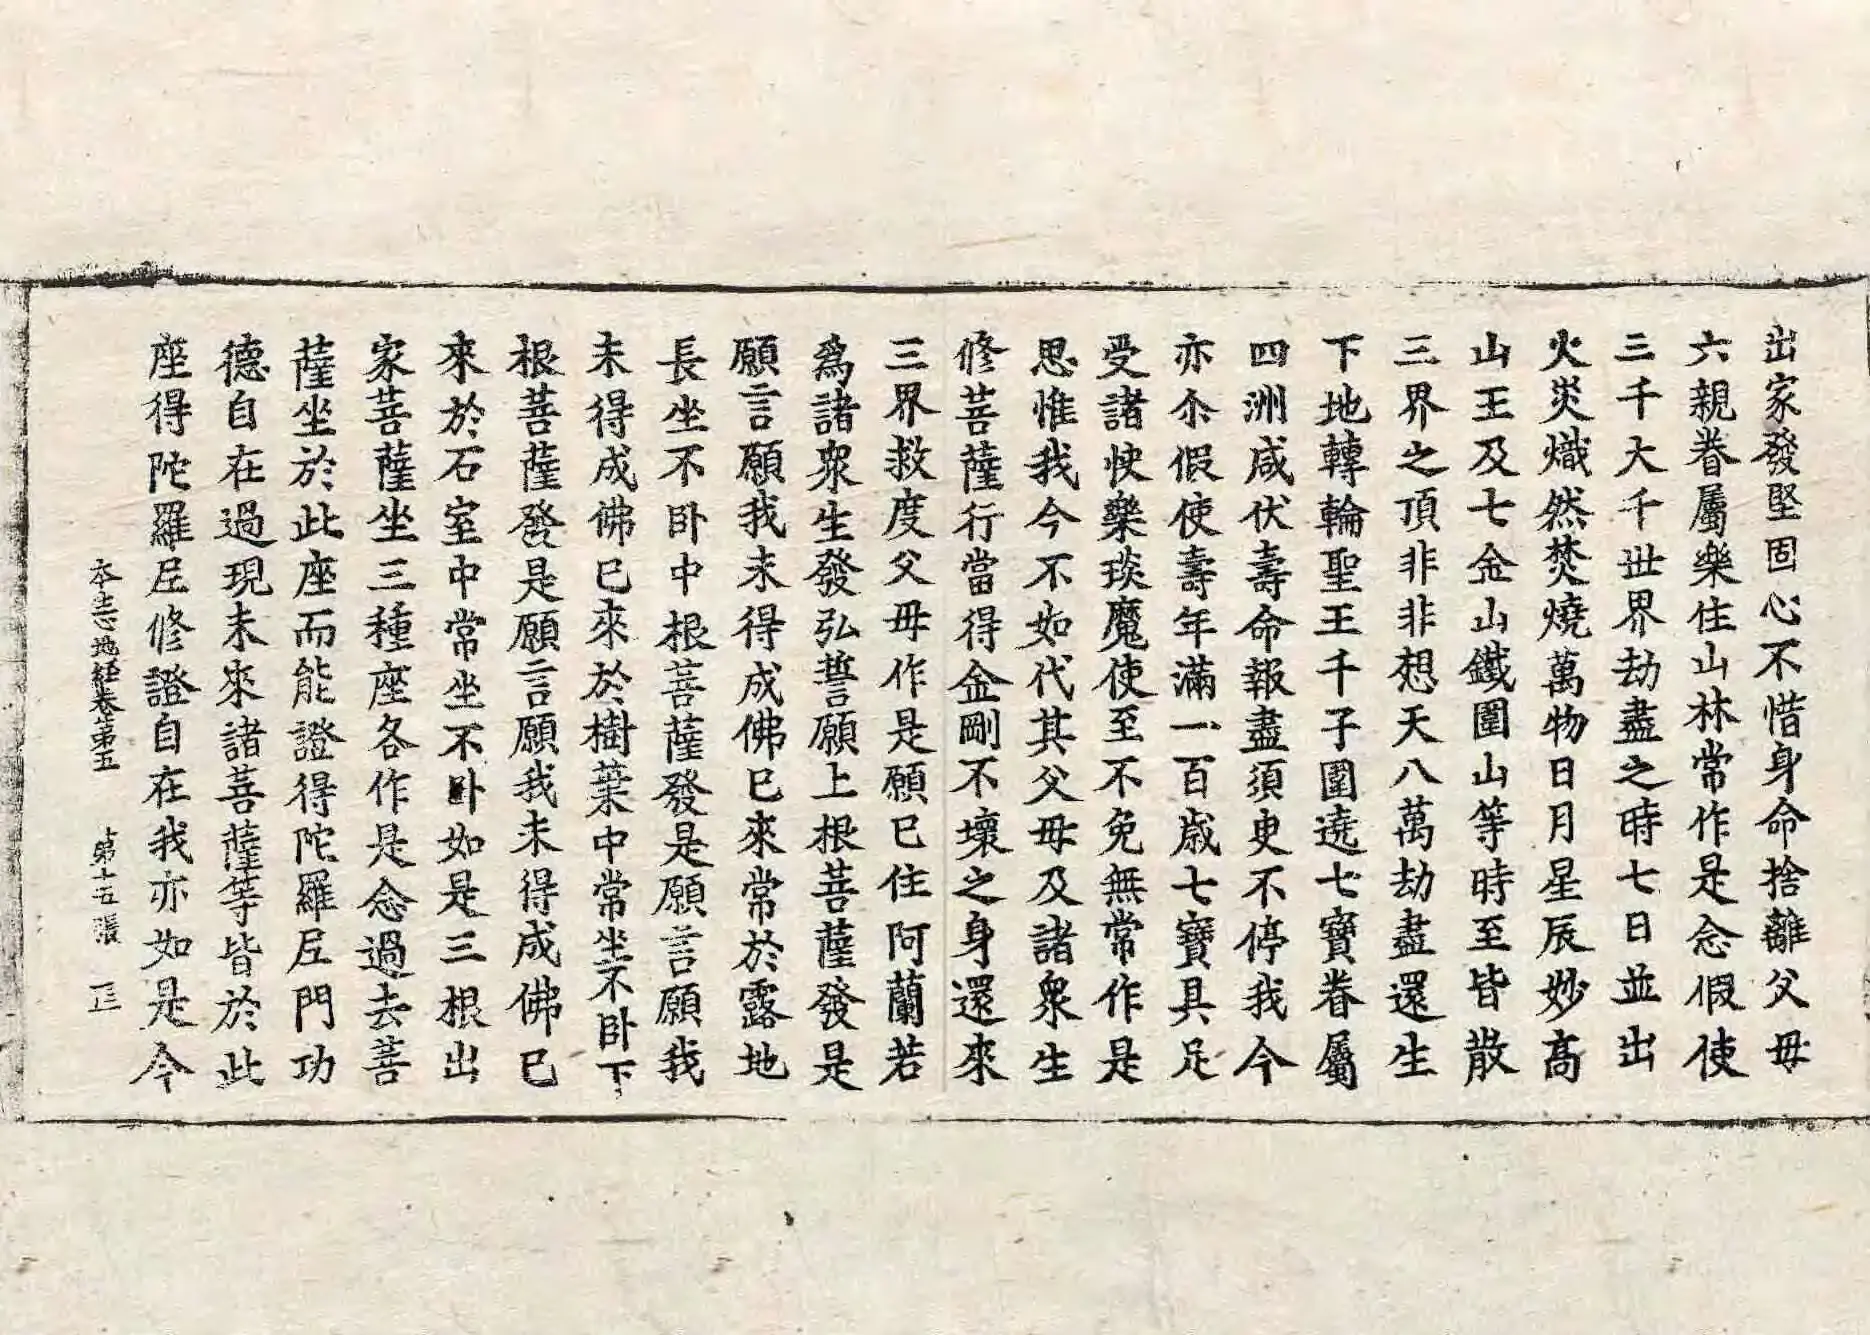 出家發堅固心不惜身命捨離父母
六親眷屬樂住山林常作是念假使
三千大千世界劫盡之時七日並出
火災熾然焚燒萬物日月星辰妙高
山王及七金山鐵圍山等時至皆散
三界之頂非非想天八萬劫盡還生
下地轉輪聖王千子圍遶七寶眷屬
四洲咸伏壽命報盡須臾不停我今
亦尒假使壽年滿一百歲七寶具足
受諸快樂琰魔使至不免無常作是
思惟我今不如代其父母及諸衆生
修菩薩行當得金剛不壞之身還來
三界救度父母作是願已住阿蘭若
爲諸衆生發弘誓願上根菩薩發是
願言願我未得成佛已來常於露地
長坐不卧中根菩薩發是願言願我
未得成佛已來於樹葉中常坐不卧下
根菩薩發是願言願我未得成佛已
來於石室中常坐不卧如是三根出
家菩薩坐三種座各作是念過去菩
薩坐於此座而能證得陀羅尼門功
德自在過現未來諸菩薩等皆於此
座得陀羅尼修證自在我亦如是今
本生心地経卷第五 第十五張